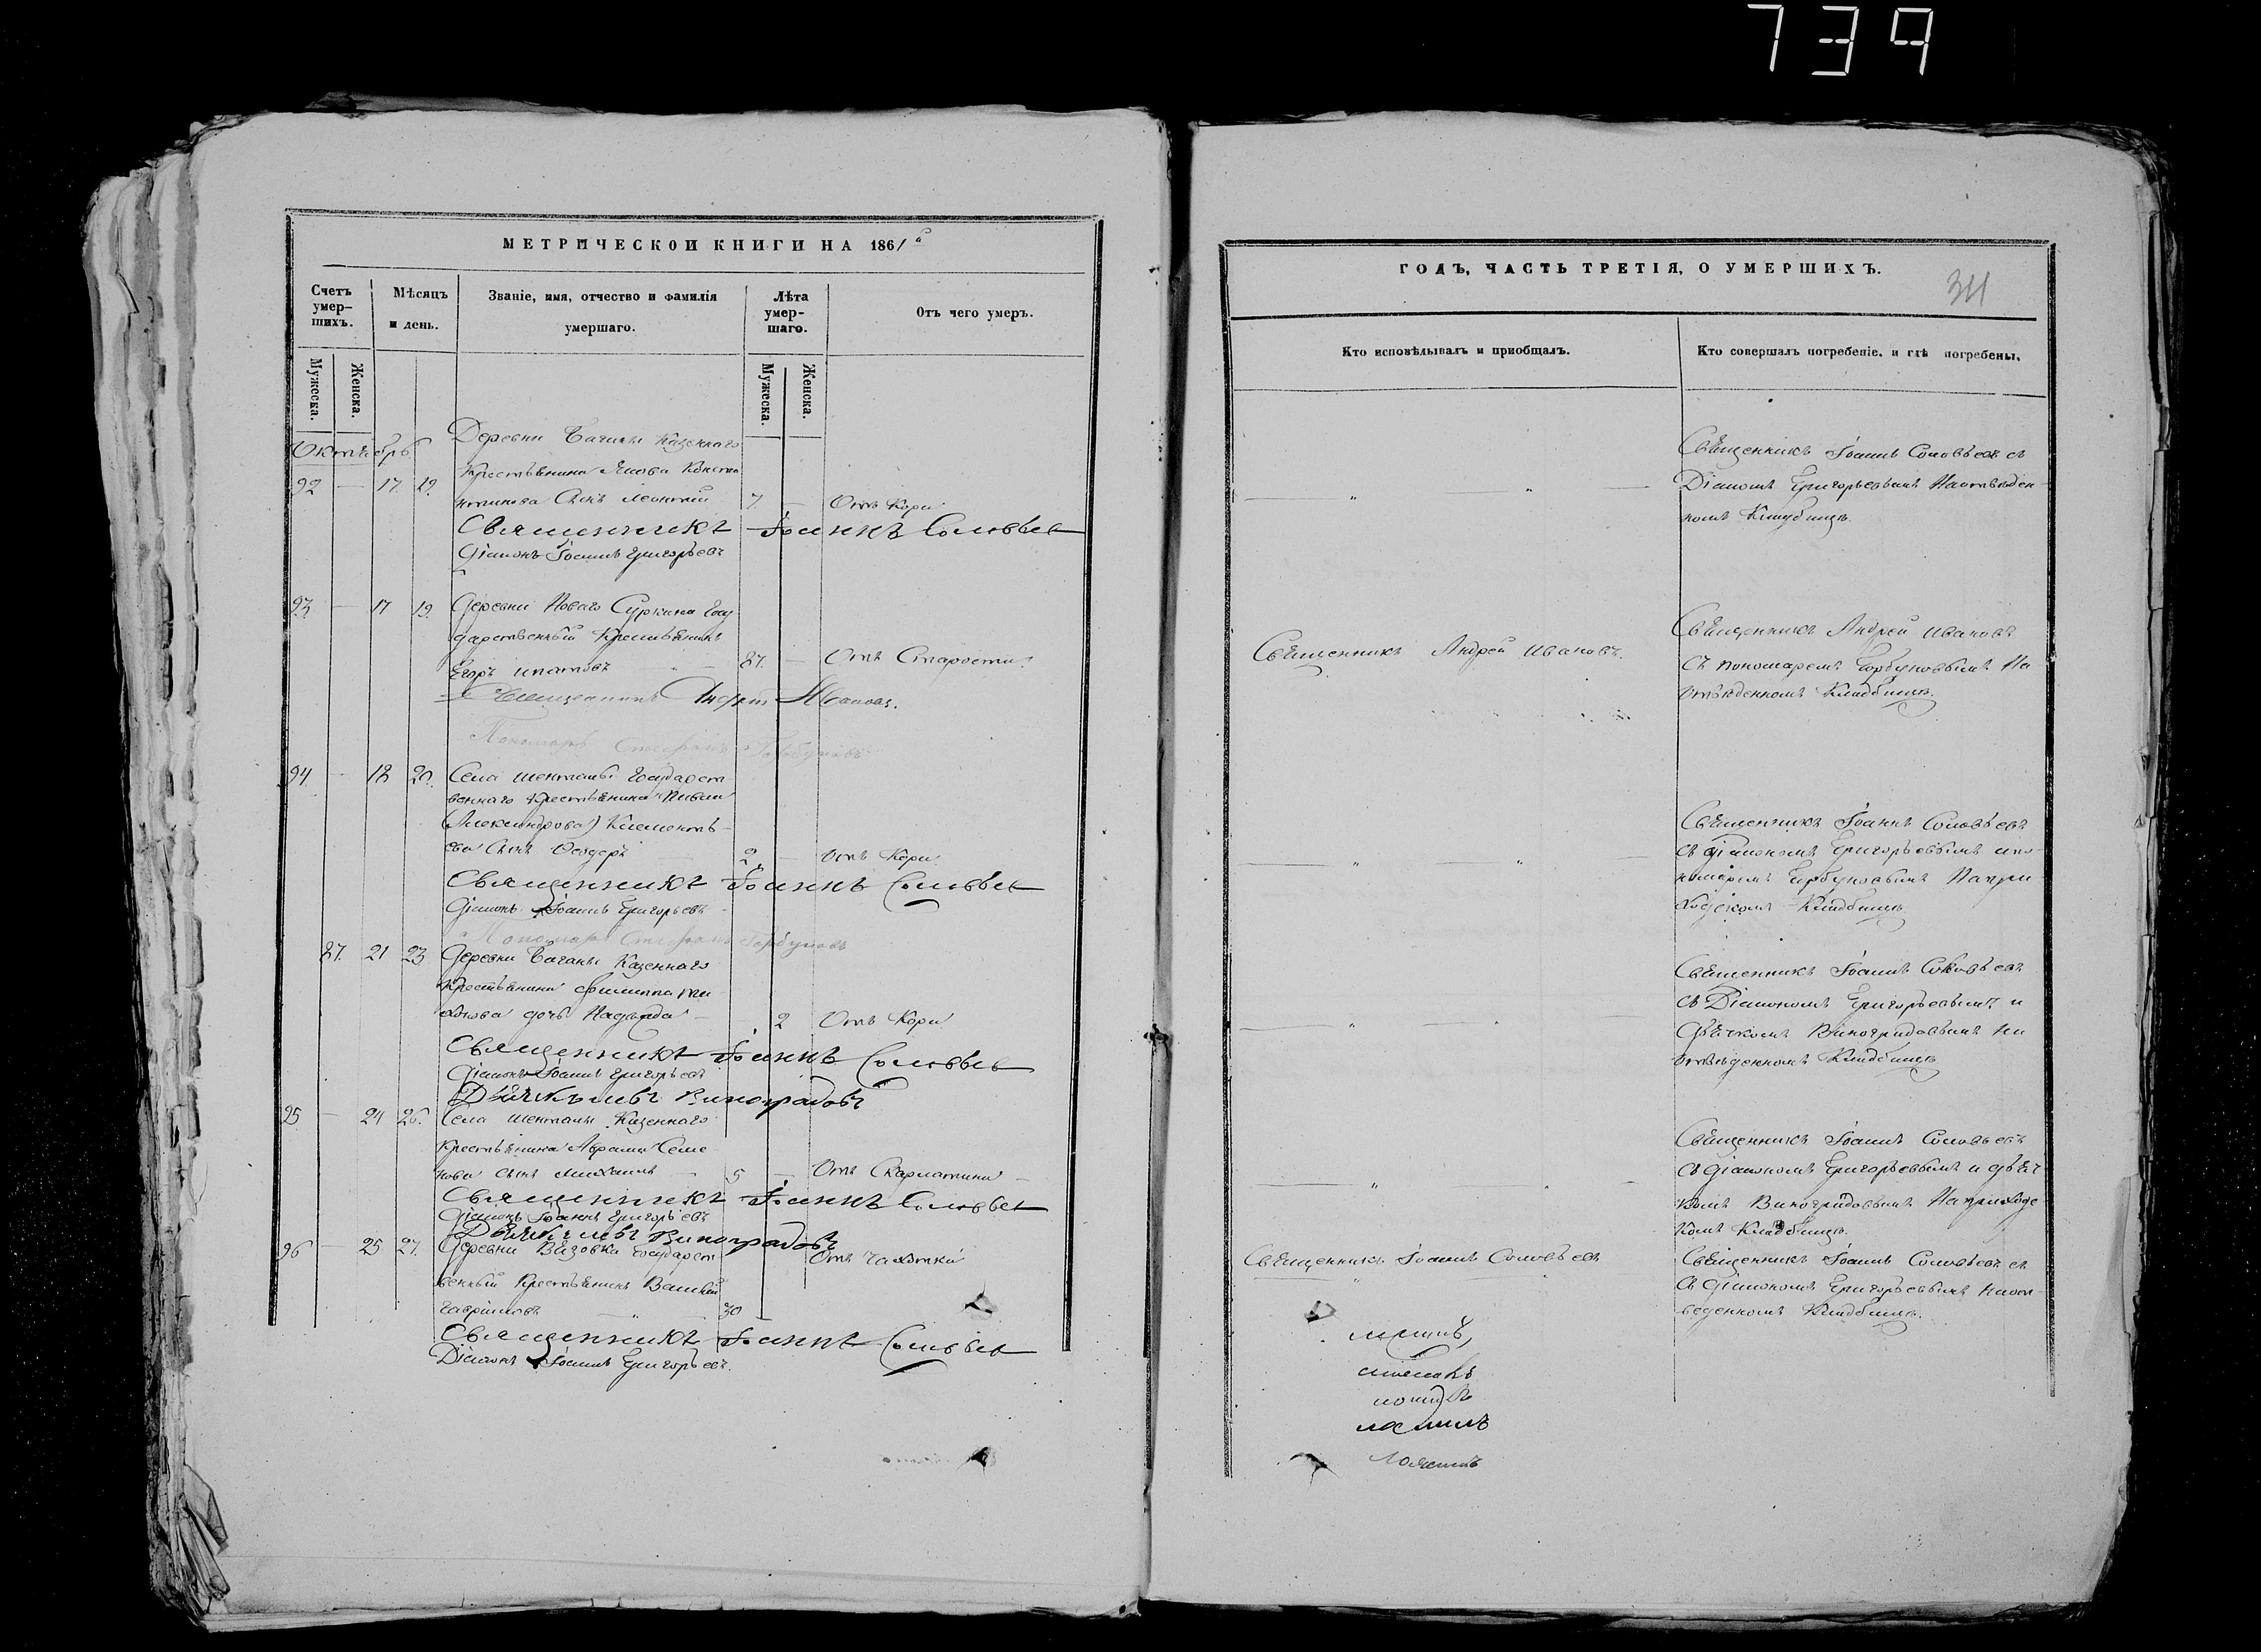 739
МЕТРИЧЕСКОЙ КНИГИ НА 1861
Счетъ умер-шихъ.
Мѣсяцъ и день.
Званіе, имя, отчество и фамилія умершаго.
Лѣта умер-шаго.
Отъ чего умеръ.
Мужеска.
Женска.
Мужеска.
Женска.
Октябрь
Деревни Баганы казеннаго
92 — 17. 19. Крестьянина Якова Конста
нтинова Сынъ Леонтій 7. — Отъ Кори
Священникъ Іоаннъ Соловьев
Діаконъ Іоаннъ Григорьевъ
93 — 17 19. Деревни Новаго Суркина Госу
дарственный Крестьянинъ
Егоръ Игнатовъ — 87. — Отъ Старости.
Священникъ Андрей Ивановъ.
Пономарь Стефанъ Горбуновъ
94 — 18 20. Села Шенталы Государст
веннаго Крестьянина
(Александрова) Клементь-
ева Сынъ Ѳеодоръ 2 — Отъ Кори
Священникъ Іоаннъ Соловьев
Діаконъ Іоаннъ Григорьевъ
Пономарь Стефанъ Горбуновъ
87. 21 23 Деревни Баганы Казеннаго
Крестьянина Филиппа Ти
хонова дочь Надежда — 2 Отъ Кори
Священникъ Іоаннъ Соловьев
Діаконъ Іоаннъ Григорьевъ
Виноградовъ
95 — 24 26. Села Шенталы Казеннаго
Крестьянина Аврама Семе
нова сынъ Михаилъ — 5 — Отъ Скарлатины
Священникъ Іоаннъ Соловьев
Діаконъ Іоаннъ Григорьевъ
Виноградовъ
96 — 25 27. Деревни Вязовки Государст Отъ Чахотки
венный Крестьянинъ Василій
Гавриловъ — 30
Священникъ Іоаннъ Соловьев
Діаконъ Іоаннъ Григорьевъ.
ГОДЪ, ЧАСТЬ ТРЕТІЯ, О УМЕРШИХЪ.
311
Кто исповѣдывалъ и пріобщалъ.
Кто совершалъ погребеніе, и гдѣ погребены.
Священникъ Іоаннъ Соловьевъ съ
Діакономъ Григорьевымъ На отведен-
номъ Кладбищѣ.
Священникъ Андрей Ивановъ.
Священникъ Андрей Ивановъ
съ пономаремъ Горбуновымъ На
отведенномъ Кладбищѣ.
Священникъ Іоаннъ Соловьевъ
съ Діакономъ Григорьевымъ и по
номаремъ Горбуновымъ На при
ходскомъ Кладбищѣ
Священникъ Іоаннъ Соловьевъ
съ Діакономъ Григорьевымъ и
Дьячкомъ Виноградовымъ На
отведенномъ Кладбищѣ
Священникъ Іоаннъ Соловьевъ
съ Діакономъ Григорьевымъ и дьяч
комъ Виноградовымъ На приходс
комъ Кладбищѣ.
Священникъ Іоаннъ Соловьевъ
Священникъ Іоаннъ Соловьевъ съ
съ Діакономъ Григорьевымъ на от-
веденномъ Кладбищѣ.